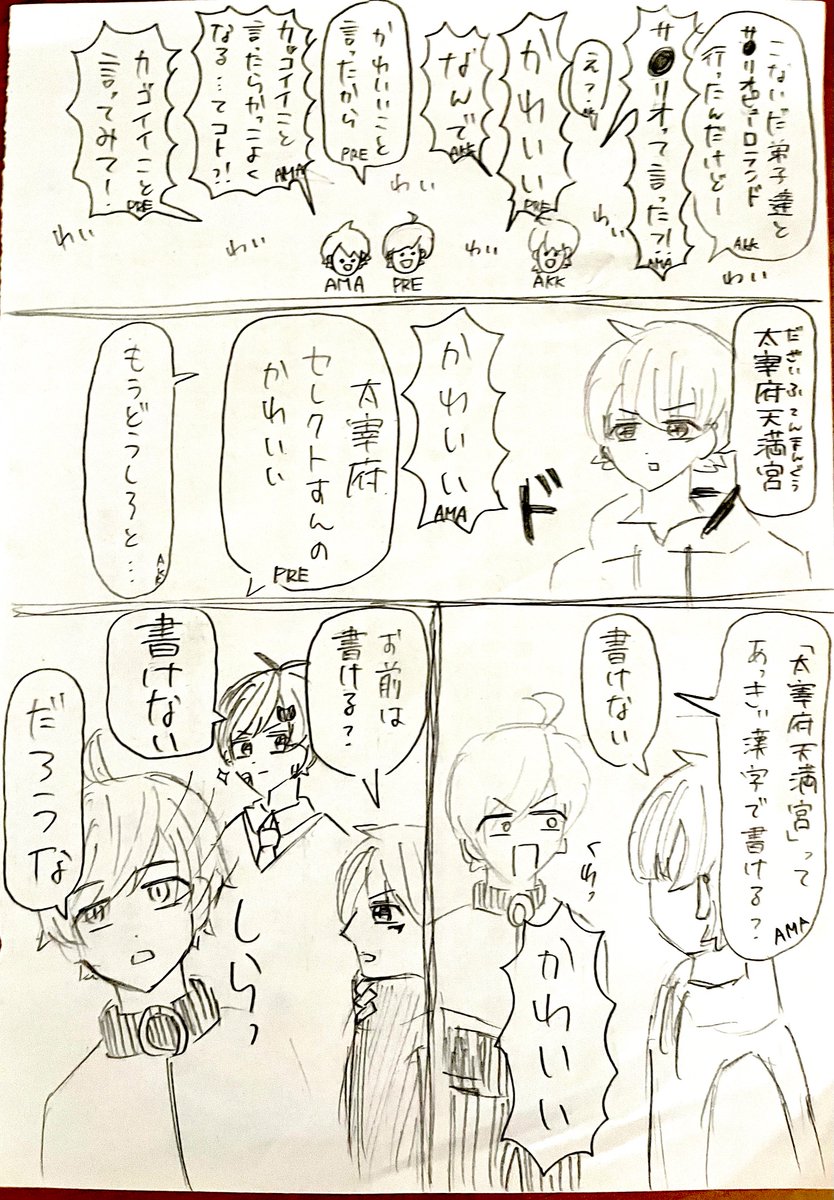 こないだ弟子達と
サ●リオピューロランド
行ったんだけどー
AKK
サ●リオって言った?!
AMA
えっ…
かわいい
PRE
なんで
AKK
かわいいこと
言ったから
PRE
カッコイイこと
言ったらかっこよく
なる…てコト?!
AMA
カッコイイこと
言ってみてー!
PRE
わい
わい
わい
わい
わい
わい
AMA
PRE
AKK
だざいふてんまんぐう
太宰府天満宮
ド
かわいい
AMA
太宰府
セレクトすんの
かわいい
PRE
もうどうしろと…
AKK
「太宰府天満宮」って
あっきぃ漢字で書ける?
AMA
書けない
くわっ
かわいい
お前は
書ける?
書けない
しらっ
だろうな